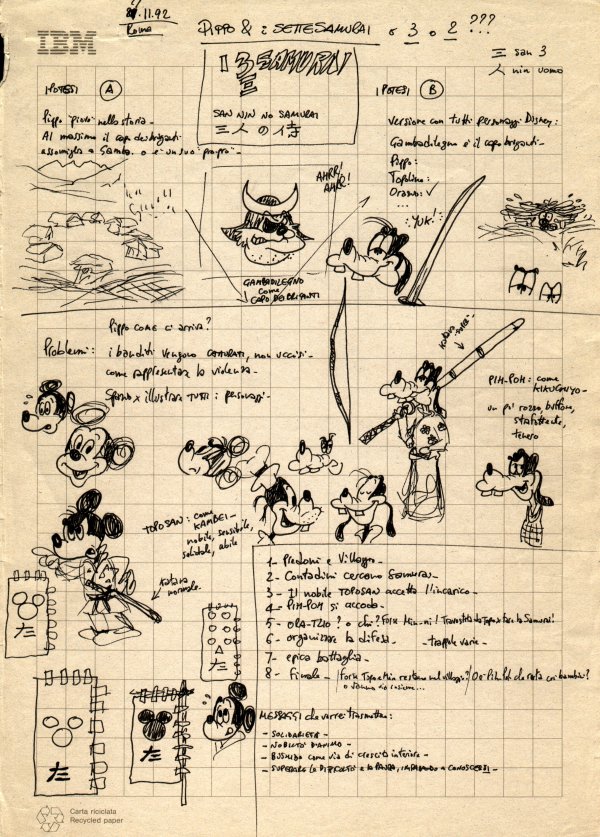 21.11.92
Roma
PIPPO & i SETTE SAMURAI o 3 o 2 ???
IBM
三 san 3
人 nin uomo
I 3 SAMURAI
三
SAN NIN NO SAMURAI
三人の侍
IPOTESI A
Pippo "piove" nella storia.
Al massimo il capo dei briganti
assomiglia a Gamba. o è un suo
IPOTESI B
Versione con tutti personaggi Disney:
Gambadilegno è il capo briganti.
Pippo:
Topolino:
Orazio: ✓
...
AHRR!
AHRR!
YUK!
GAMBADILEGNO
come
CAPO DEI BRIGANTI
Pippo come ci arriva?
Problemi: i banditi vengono CATTURATI, non uccisi.
come rappresentare la violenza.
Spazio x illustrare TUTTI i personaggi.
PIH-POH: come
KIKUCHIYO.
un po' rozzo, buffone,
tenero
TOPOSAN: come
KAMBEI.
nobile, sensibile,
solidale, abile
Katana
normale.
た
た
た
た
1- Predoni e Villaggio.
2- Contadini cercano Samurai.
3- Il nobile TOPOSAN accetta l'incarico.
4- PIH-POH si accoda.
5- ORA-TZIO? o chi? Forse Min-ni! Travestita da Topo fa la Samurai!
6- organizzare la difesa. trappole varie.
7- epica battaglia.
8- Finale. (Forse Topo e Min restano nel villaggio? Oe Pih-Poh che resta coi bambini?
o vanno via insieme...
MESSAGGI che vorrei trasmettere:
- SOLIDARIETÀ.
- NOBILTÀ D'ANIMO.
- BUSHIDO come via di crescita interiore.
- SUPERARE LE DIFFICOLTÀ e la PAURA, IMPARANDO A CONOSCERSI.
Carta riciclata
Recycled paper